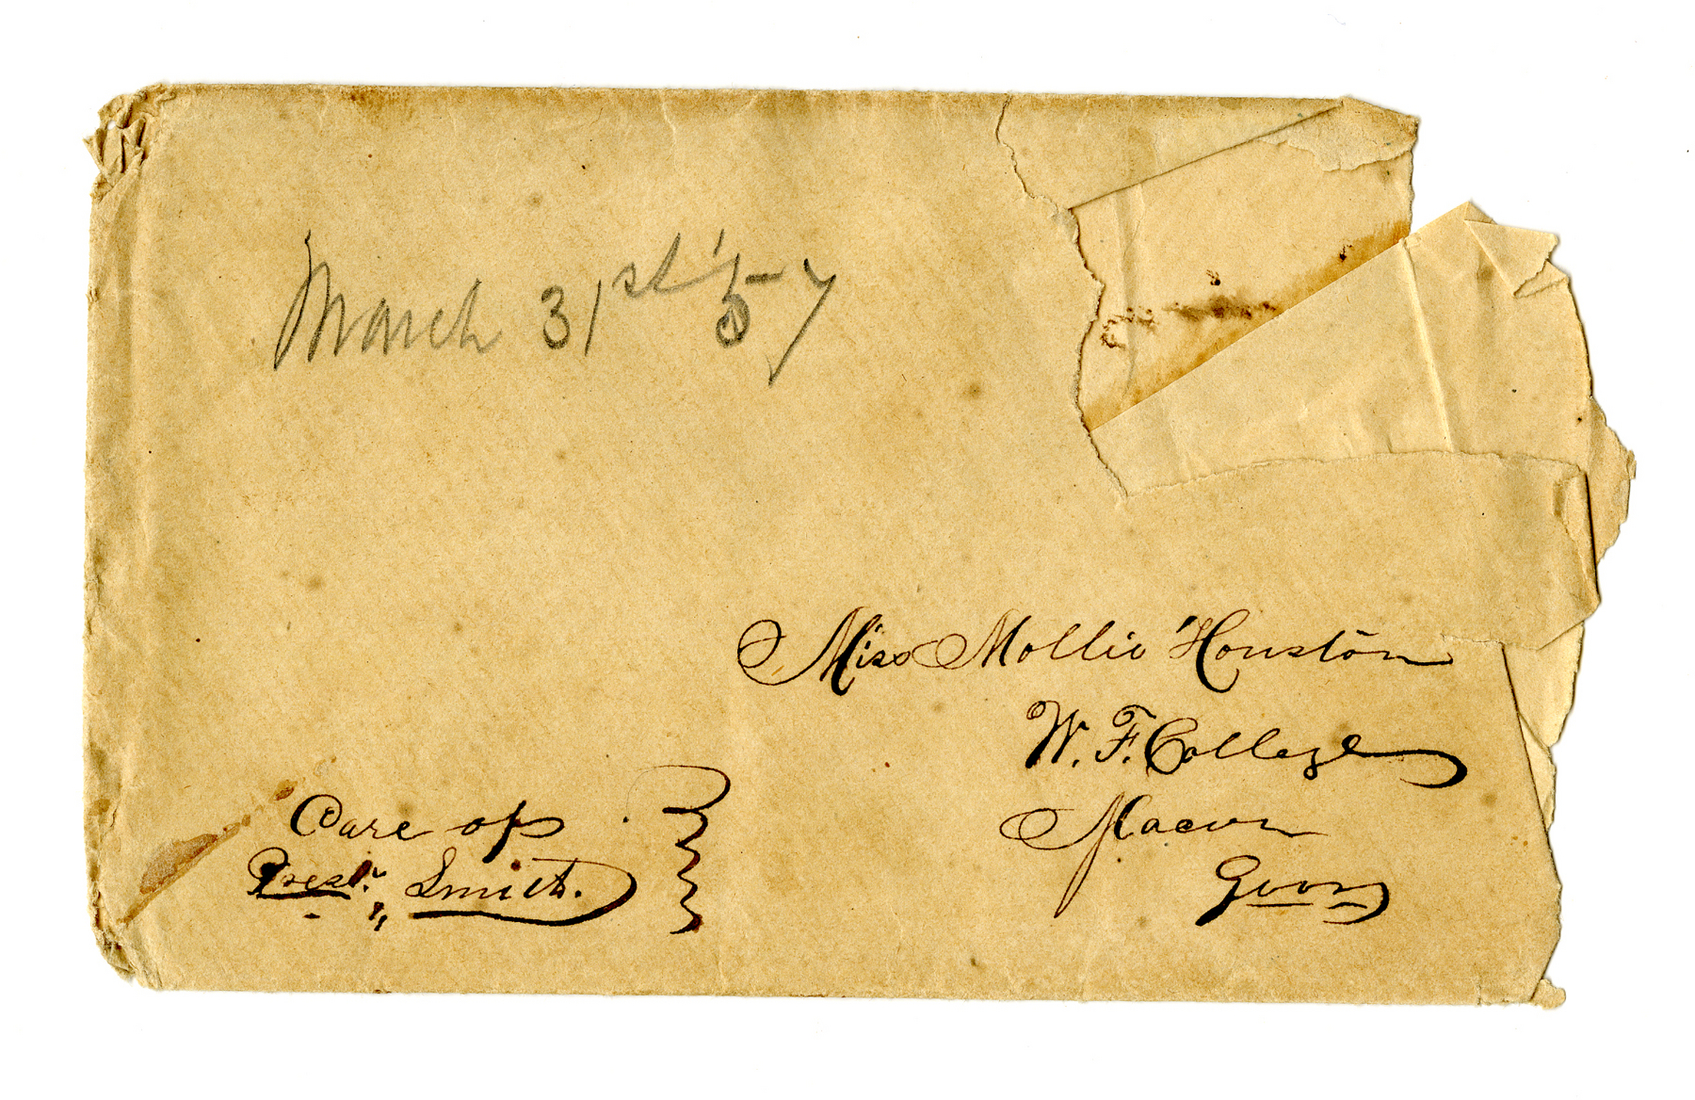 March 31st '57
Miss Mollie Houston
W. F. College
Macon
Geor
Care of
Prest. Smith.